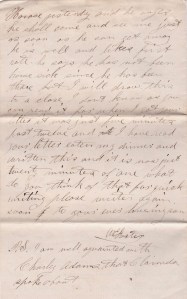 Horace yesterday and he says
he shall come and see me just
as soon as he can get away
he is well and likes first
rate he says he has not been
home sick since he has been
there but I will draw this
to a close I don't know as you
can read it for when I got your
letter it was just five minutes
past twelve and I have read
your letter eaten my dinner and
written this and it is now just
twenty minutes of one what
do you think of that for quick
writing please write again
soon if to your
P.S. I am well acquainted with
Charley Adams that Clarinda
spoke about